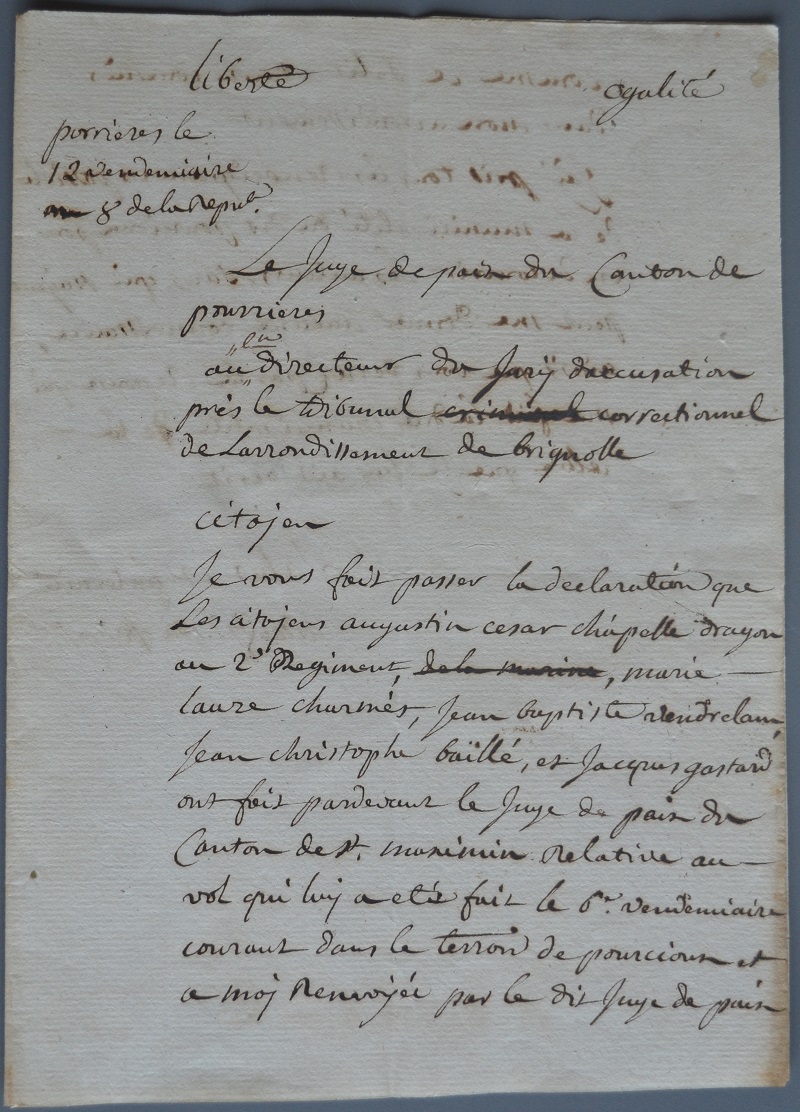 liberté
egalité
porrieres le
12 vendemiaire
an 8 de la Repub.
Le Juge de paix du Canton de
pourrieres
au directeur du Jury daccusation
près le tribunal criminel correctionnel
de Larrondissement de brignolle
citojen
Je vous fait passer la declaration que
Les citojens augustin cesar chapelle dragon
au 2e Regiment, de la marine, marie
laure charmés, jean baptiste
jean christophe baillé, et jacques gastard
ont fait pardevant le Juge de paix du
Canton de St. maximin Relative au
vol qui luy a eté fait le 6e. vendemiaire
courant dans le terroir de pourcioux et
a moj Renvojée par le dit Juge de paix